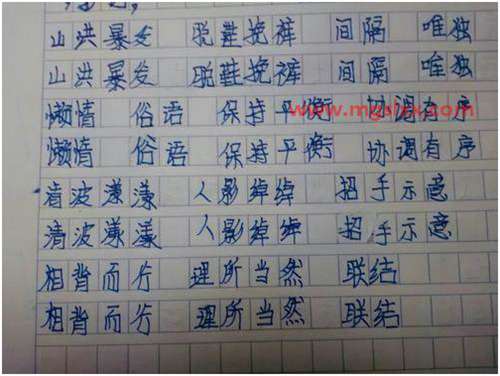 山洪暴发 脱鞋挽裤 间隔 唯独
山洪暴发 脱鞋挽裤 间隔 唯独
懒惰 俗语 保持平衡 协调有序
www.mgshx.com
懒惰 俗语 保持平衡 协调有序
清波漾漾 人影绰绰 招手示意
清波漾漾 人影绰绰 招手示意
相背而行 理所当然 联结
相背而行 理所当然 联结